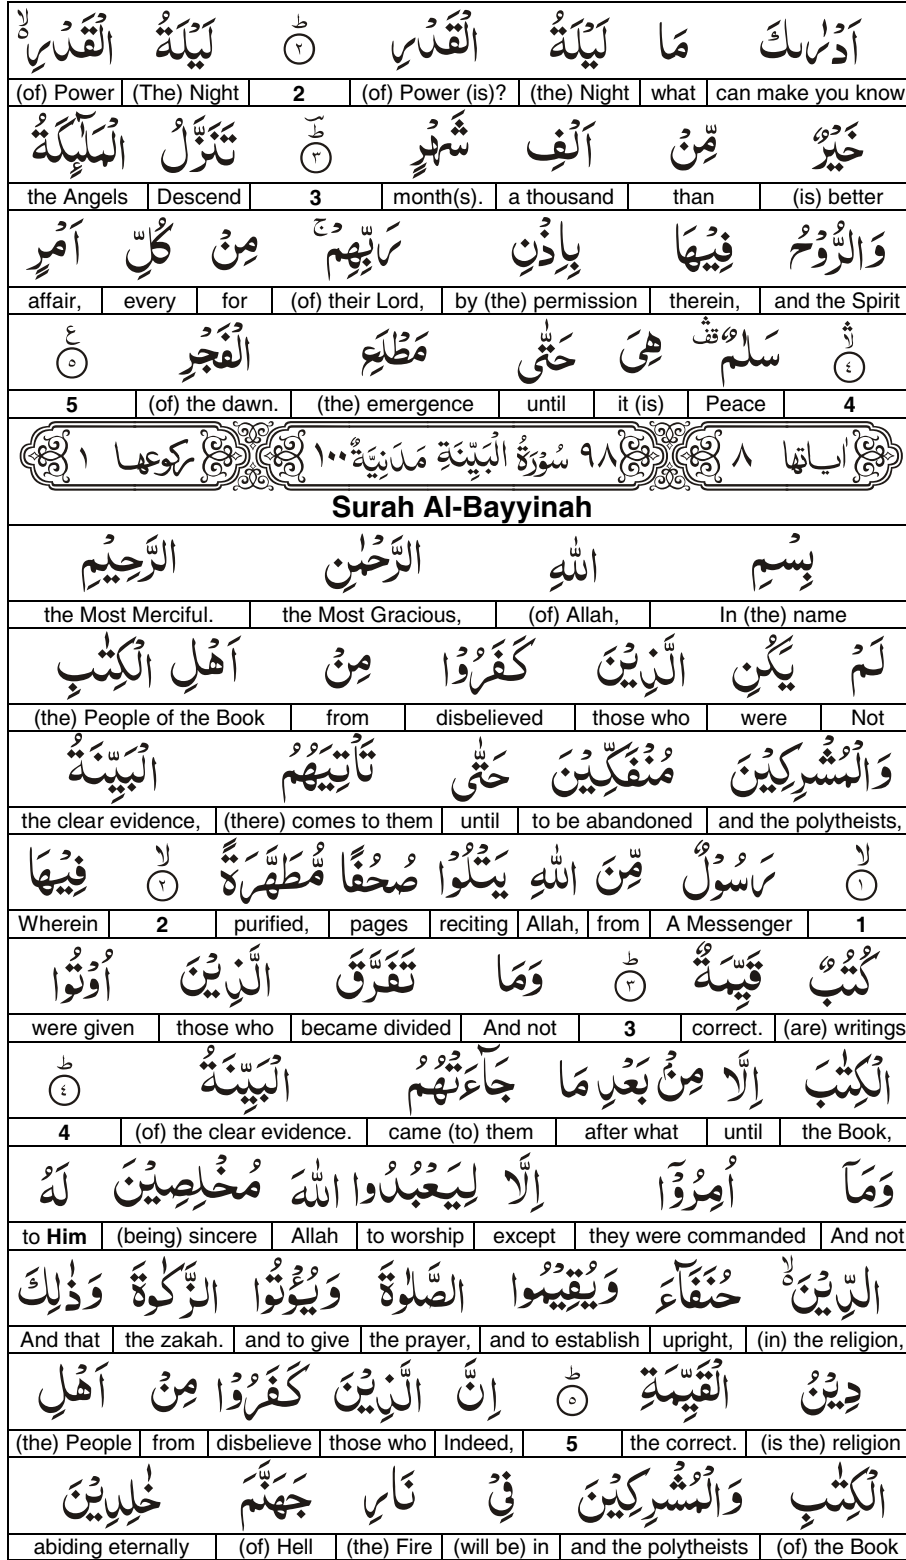 اَدْرٰىكَ مَا لَيْلَةُ الْقَدْرِ ؕ ٢ لَيْلَةُ الْقَدْرِ ۙ
can make you know what (the) Night (of) Power (is)? 2 (The) Night (of) Power
خَيْرٌ مِّنْ اَلْفِ شَهْرٍ ؕ ٣ تَنَزَّلُ الْمَلٰٓئِكَةُ
(is) better than a thousand month(s). 3 Descend the Angels
وَالرُّوْحُ فِيْهَا بِاِذْنِ رَبِّهِمْ ۚ مِنْ كُلِّ اَمْرٍ
and the Spirit therein, by (the) permission (of) their Lord, for every affair,
ۙ ٤ سَلٰمٌ ۛ قف هِيَ حَتّٰى مَطْلَعِ الْفَجْرِ ع ٥
4 Peace it (is) until (the) emergence (of) the dawn. 5
اٰیاتها ٨ ٩٨ سُوْرَةُ الْبَيِّنَةِ مَدَنِيَّةٌ ١٠٠ رکوعها ١
Surah Al-Bayyinah
بِسْمِ اللّٰهِ الرَّحْمٰنِ الرَّحِيْمِ
In (the) name (of) Allah, the Most Gracious, the Most Merciful.
لَمْ يَكُنِ الَّذِيْنَ كَفَرُوْا مِنْ اَهْلِ الْكِتٰبِ
Not were those who disbelieved from (the) People of the Book
وَالْمُشْرِكِيْنَ مُنْفَكِّيْنَ حَتّٰى تَاْتِيَهُمُ الْبَيِّنَةُ
and the polytheists, to be abandoned until (there) comes to them the clear evidence,
ۙ ١ رَسُوْلٌ مِّنَ اللّٰهِ يَتْلُوْا صُحُفًا مُّطَهَّرَةً ۙ ٢ فِيْهَا
1 A Messenger from Allah, reciting pages purified, 2 Wherein
كُتُبٌ قَيِّمَةٌ ؕ ٣ وَمَا تَفَرَّقَ الَّذِيْنَ اُوْتُوا
(are) writings correct. 3 And not became divided those who were given
الْكِتٰبَ اِلَّا مِنْۢ بَعْدِ مَا جَآءَتْهُمُ الْبَيِّنَةُ ؕ ٤
the Book, until after what came (to) them (of) the clear evidence. 4
وَمَاۤ اُمِرُوْۤا اِلَّا لِيَعْبُدُوا اللّٰهَ مُخْلِصِيْنَ لَهُ
And not they were commanded except to worship Allah (being) sincere to Him
الدِّيْنَ ۙ حُنَفَآءَ وَيُقِيْمُوا الصَّلٰوةَ وَيُؤْتُوا الزَّكٰوةَ وَذٰلِكَ
(in) the religion, upright, and to establish the prayer, and to give the zakah. And that
دِيْنُ الْقَيِّمَةِ ؕ ٥ اِنَّ الَّذِيْنَ كَفَرُوْا مِنْ اَهْلِ
(is the) religion the correct. 5 Indeed, those who disbelieve from (the) People
الْكِتٰبِ وَالْمُشْرِكِيْنَ فِيْ نَارِ جَهَنَّمَ خٰلِدِيْنَ
(of) the Book and the polytheists (will be) in (the) Fire (of) Hell abiding eternally